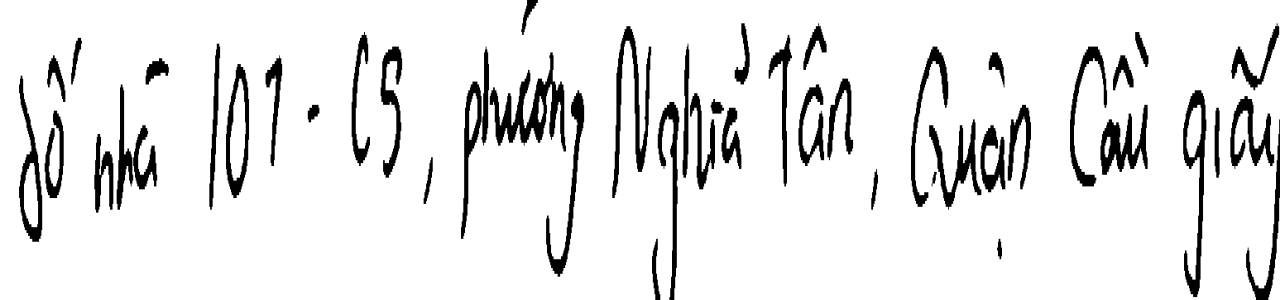 Số nhà 107 - C5, phường Nghĩa Tân, Quận Cầu giấy